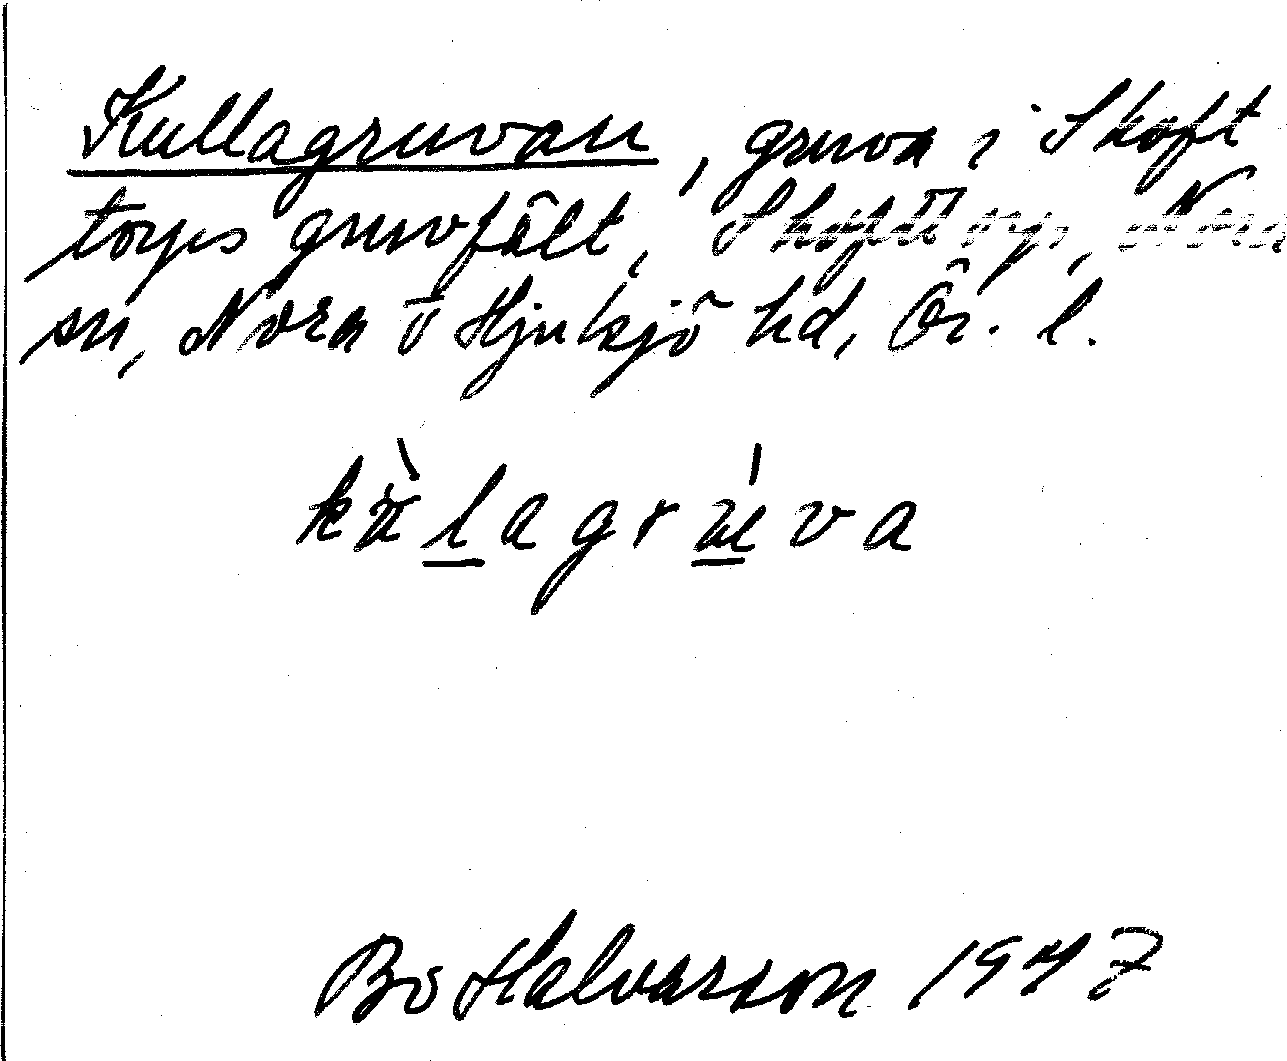 Kullagruvan, gruva i Skoft
torps gruvfält, Skofttorp, Nora
sn, Nora o Hjulsjö hd, Ör. l.
kùlagrúva
Bo Halvarson 1947